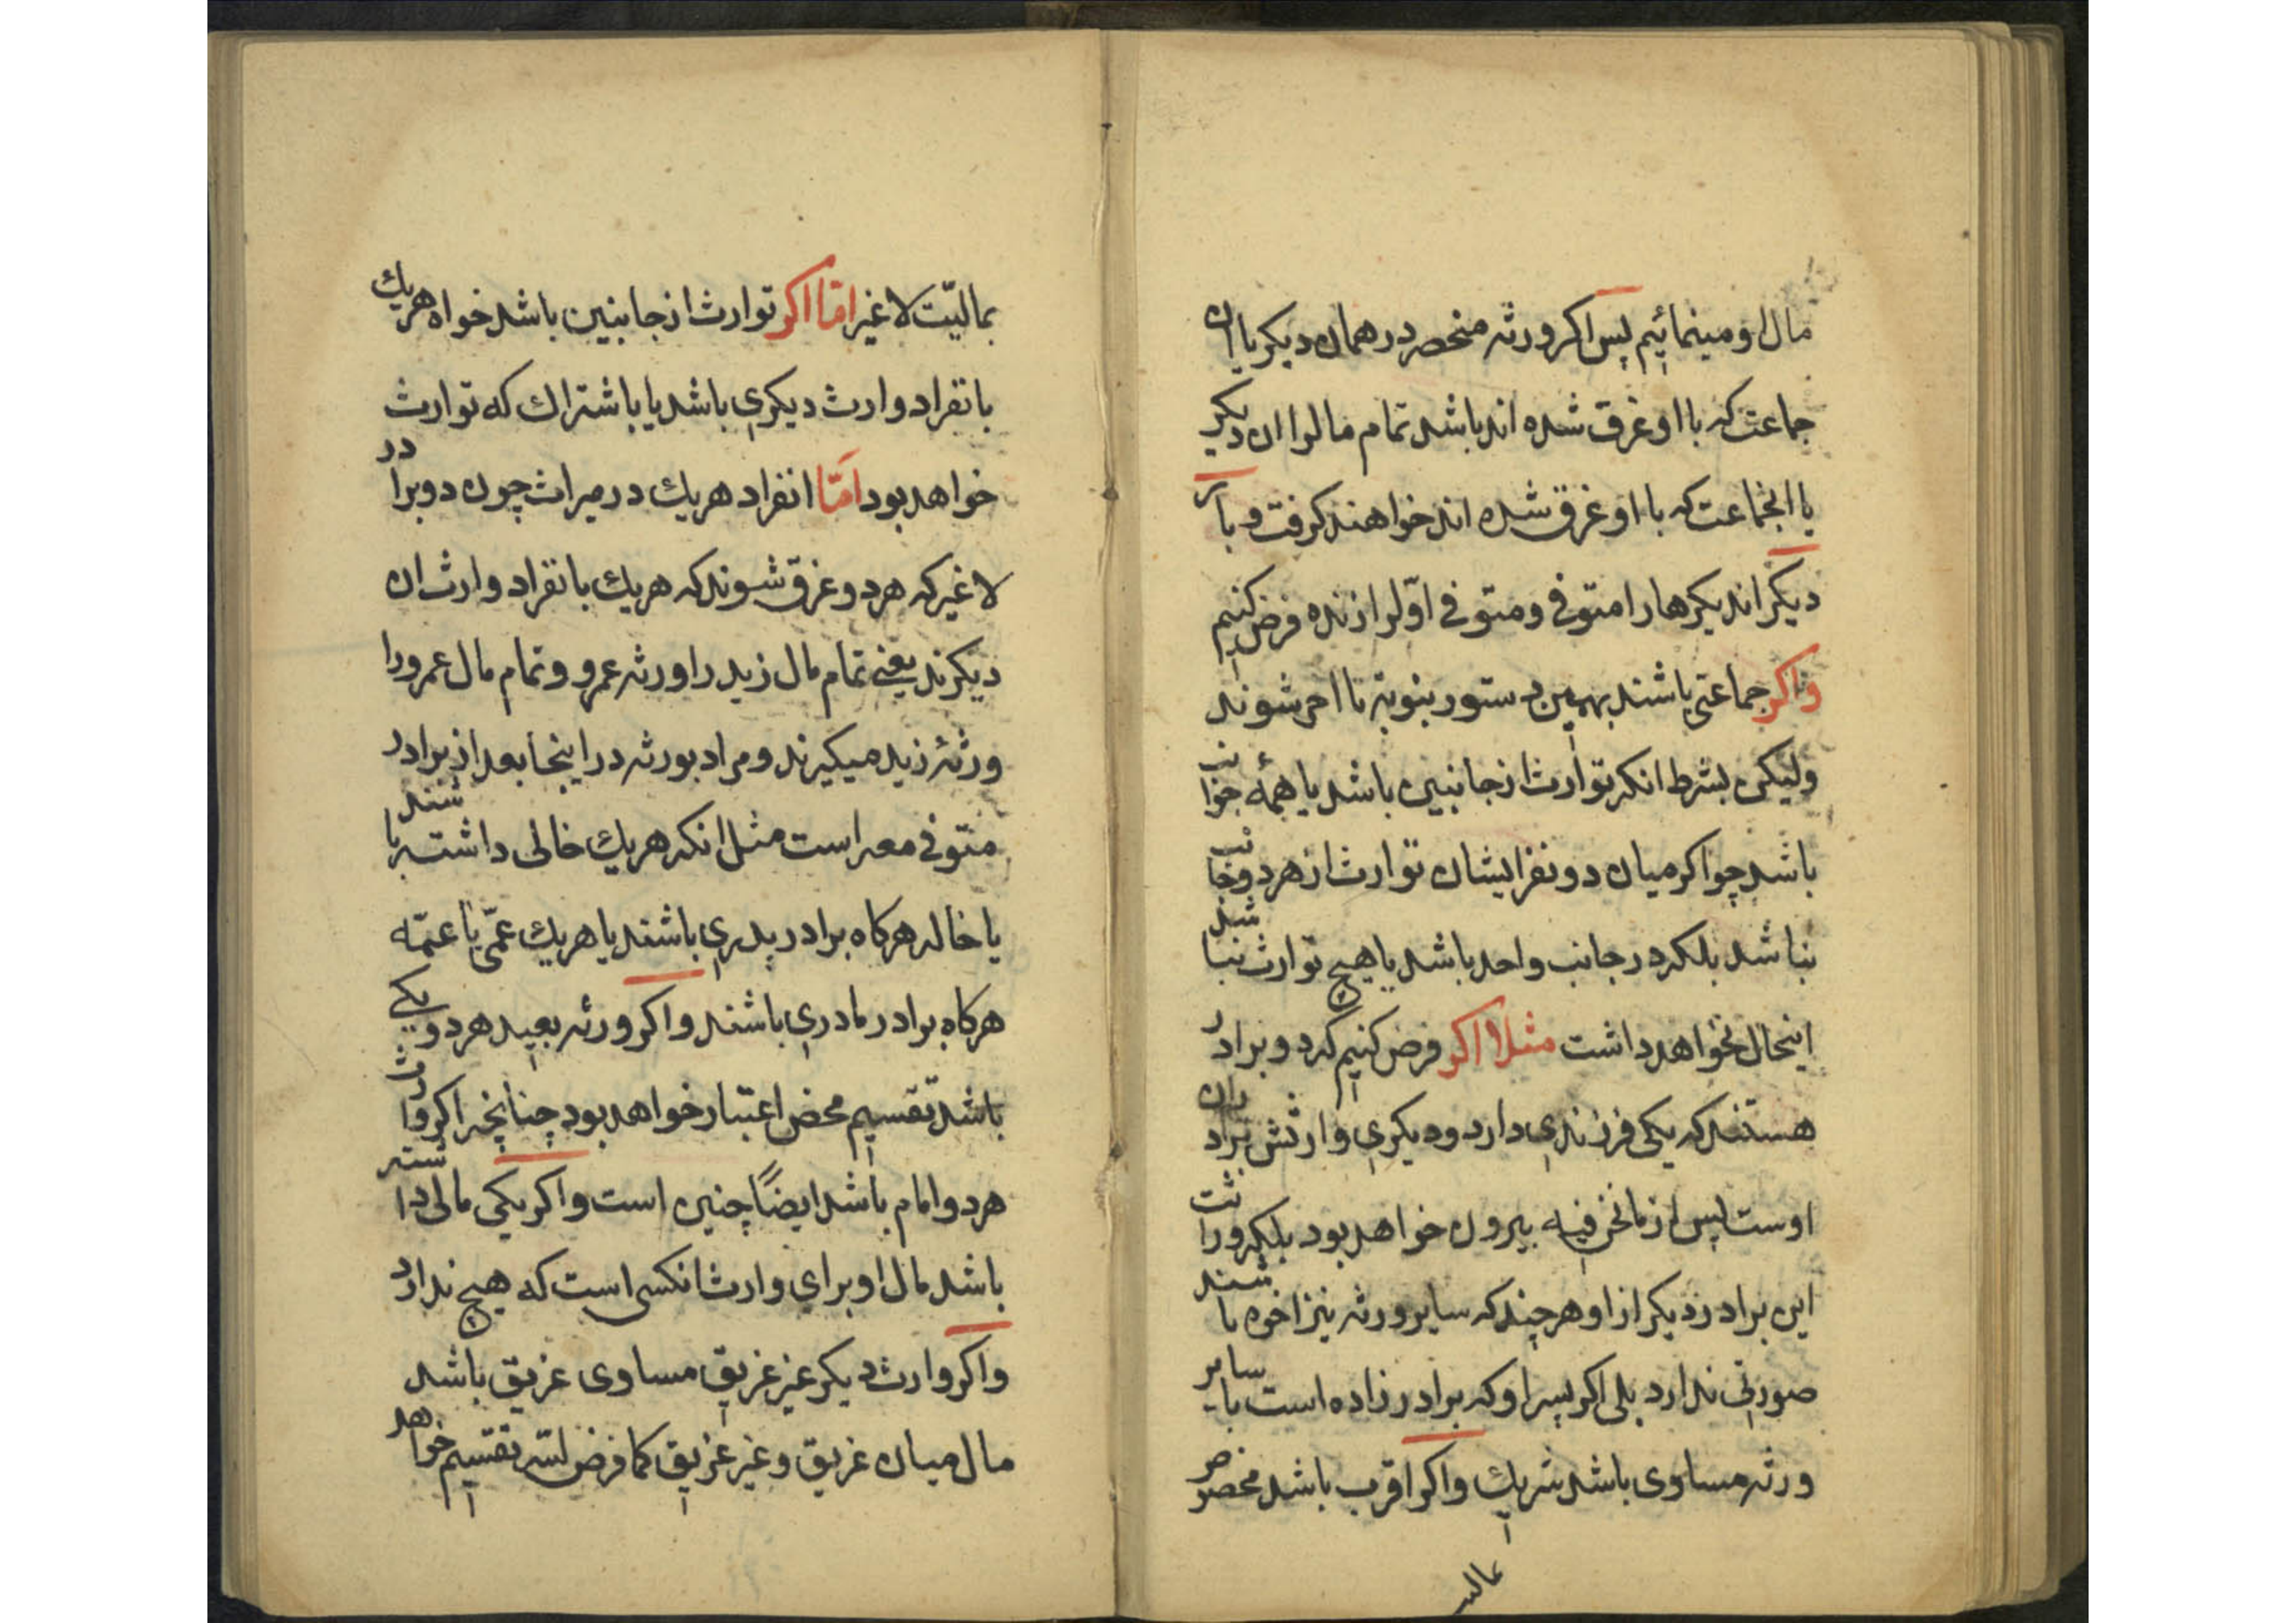 مال او مینمائیم پس اکر ورثه منحصر در همان دیکر یا ان
جماعت که با او غرق شده اند باشد تمام مالرا ان دیکر
یا انجماعت که با او غرق شده اند خواهند کرفت و باز
دیکر اند یکرها را متوفی و متوفی اوّلرا زنده فرض کنیم
واکر جماعتی باشند بهمین دستور بنوبة تا اخر شوند
ولیکن بشرط انکه توارث از جانبین باشد یا همهٔ جوانب
باشد چو اکر میان دو نفر ایشان توارث از هر دو جانب
نباشد بلکه در جانب واحد باشد یا هیچ توارث نباشد
اینحال نخواهد داشت مثلا اکر فرض کنیم که دو برادر
هستند که یکی فرزندی دارد و دیکری وارثش برادران
اوست پس از مانحن فیه بیرون خواهد بود بلکه وراثت
این برادر دیکر از او هر چند که سایر ورثه نیز اخوه باشند
صورتی ندارد بلی اکر پسر او که برادر زاده است با سایر
ورثه مساوی باشد شریك واکر اقرب باشد منحصر
بمالیّت
بمالیّت لا غیر امّا اکر توارث از جانبین باشد خواه هریك
بانفراد وارث دیکری باشد یا باشتراك که توارث
خواهد بود امّا انفراد هریك در میراث چون دو برادر
لا غیر که هر دو غرق شوند که هریك بانفراد وارث ان
دیکرند یعنی تمام مال زید را ورثه عمرو و تمام مال عمرو را
ورثهٔ زید میکیرند و مراد بورثه در اینجا بعد از برادر
متوفی معه است مثل انکه هریك خالی داشته باشند
یا خاله هرکاه برادر پدری باشند یا هریك عمّی یا عمّه
هرکاه برادر مادری باشند واکر ورثه بعید هر دو یکی
باشد تقسیم محض اعتبار خواهد بود چنانچه اکر وارث
هر دو امام باشد ایضًا چنین است واکر یکی مالی داشته
باشد مال او برای وارث انکسی است که هیچ ندارد
واکر وارث دیکر غیر غریق مساوی غریق باشد
مال میان غریق و غیر غریق کما فرض لله تقسیم خواهد